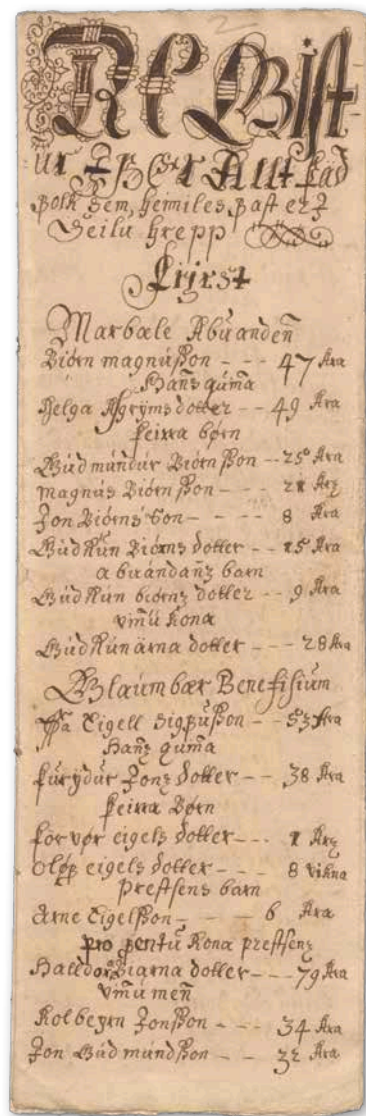 2
REGist
ur yfer Allt það
folk Sem, heimiles fast er J
Seilu hrepp
Fyrst
Marbæle Abúanden̄
Biórn magnúßon - - - 47 Ára
Han̄s qúin̄a
Helga Aſgrÿms dotter - - 49 Ára
þeirra bórn
Gúdmúndúr Biórnßon - - 25 Ára
magnús Biórnßon - - - 21 Árz
Jon Biórns son - - - - 8 Ára
Gúdrún Biórns dotter - - 15 Ára
abúandan̄z barn
Gúdrún biórnz dotter - - 9 Ára
vin̄ú kona
Gúdrún árna dotter - - - 28 Ára
Glaumbær Benefisium
Sra Eigell Sigfúßon - - 53 Ára
Han̄z qúin̄a
þúrÿdúr Jonz dotter - - 38 Ára
þeirra Bórn
þorvór eigels dotter - - - 1 Árz
olóf eigels dotter - - - 8 vikna
Prestsens barn
Arne Eigelßon - - - 6 Ára
pro ventú kona prestsenz
Halldora Biarna dotter - - - 79 Ára
vin̄ú men̄
Kolbeyrn Jonßon - - - 34 Ára
Jon Gúdmúndßon - - - 32 Ára